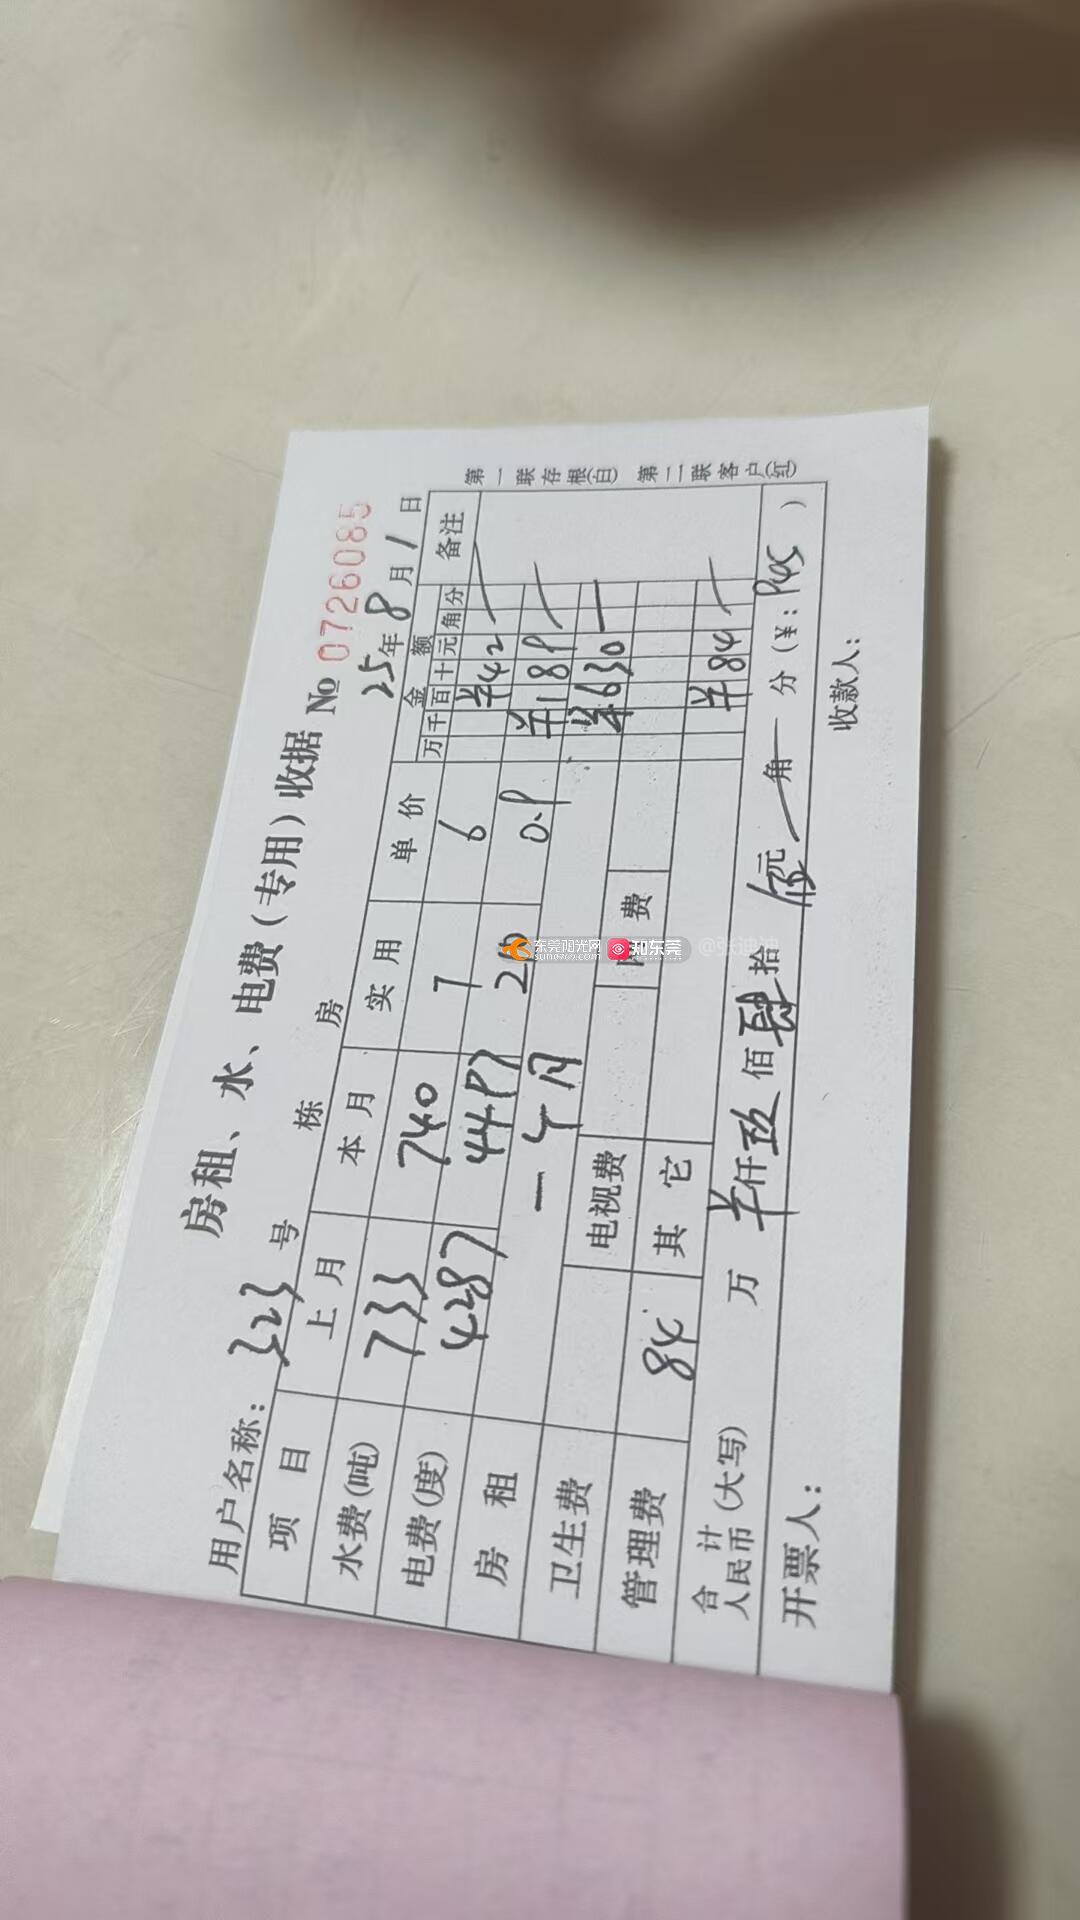 房租、水、电费（专用）收据 № 0726085
用户名称：323 号 栋 房 25年8月1日
项目 上月 本月 实用 单价 金额 备注
万 千 百 十 元 角 分
水费(吨) 733 740 7 6 ¥42
电费(度) 4287 4497 210 0.9 ¥189
房租 一个月 ¥630
卫生费 电视费 网费
管理费 84 其它 ¥84
合计人民币(大写) 万 仟 玖佰肆拾伍元 角 分（¥：945）
开票人： 收款人：
第一联存根(白) 第二联客户(红)
东莞阳光网
sun0769.com
知东莞
@张迪迪